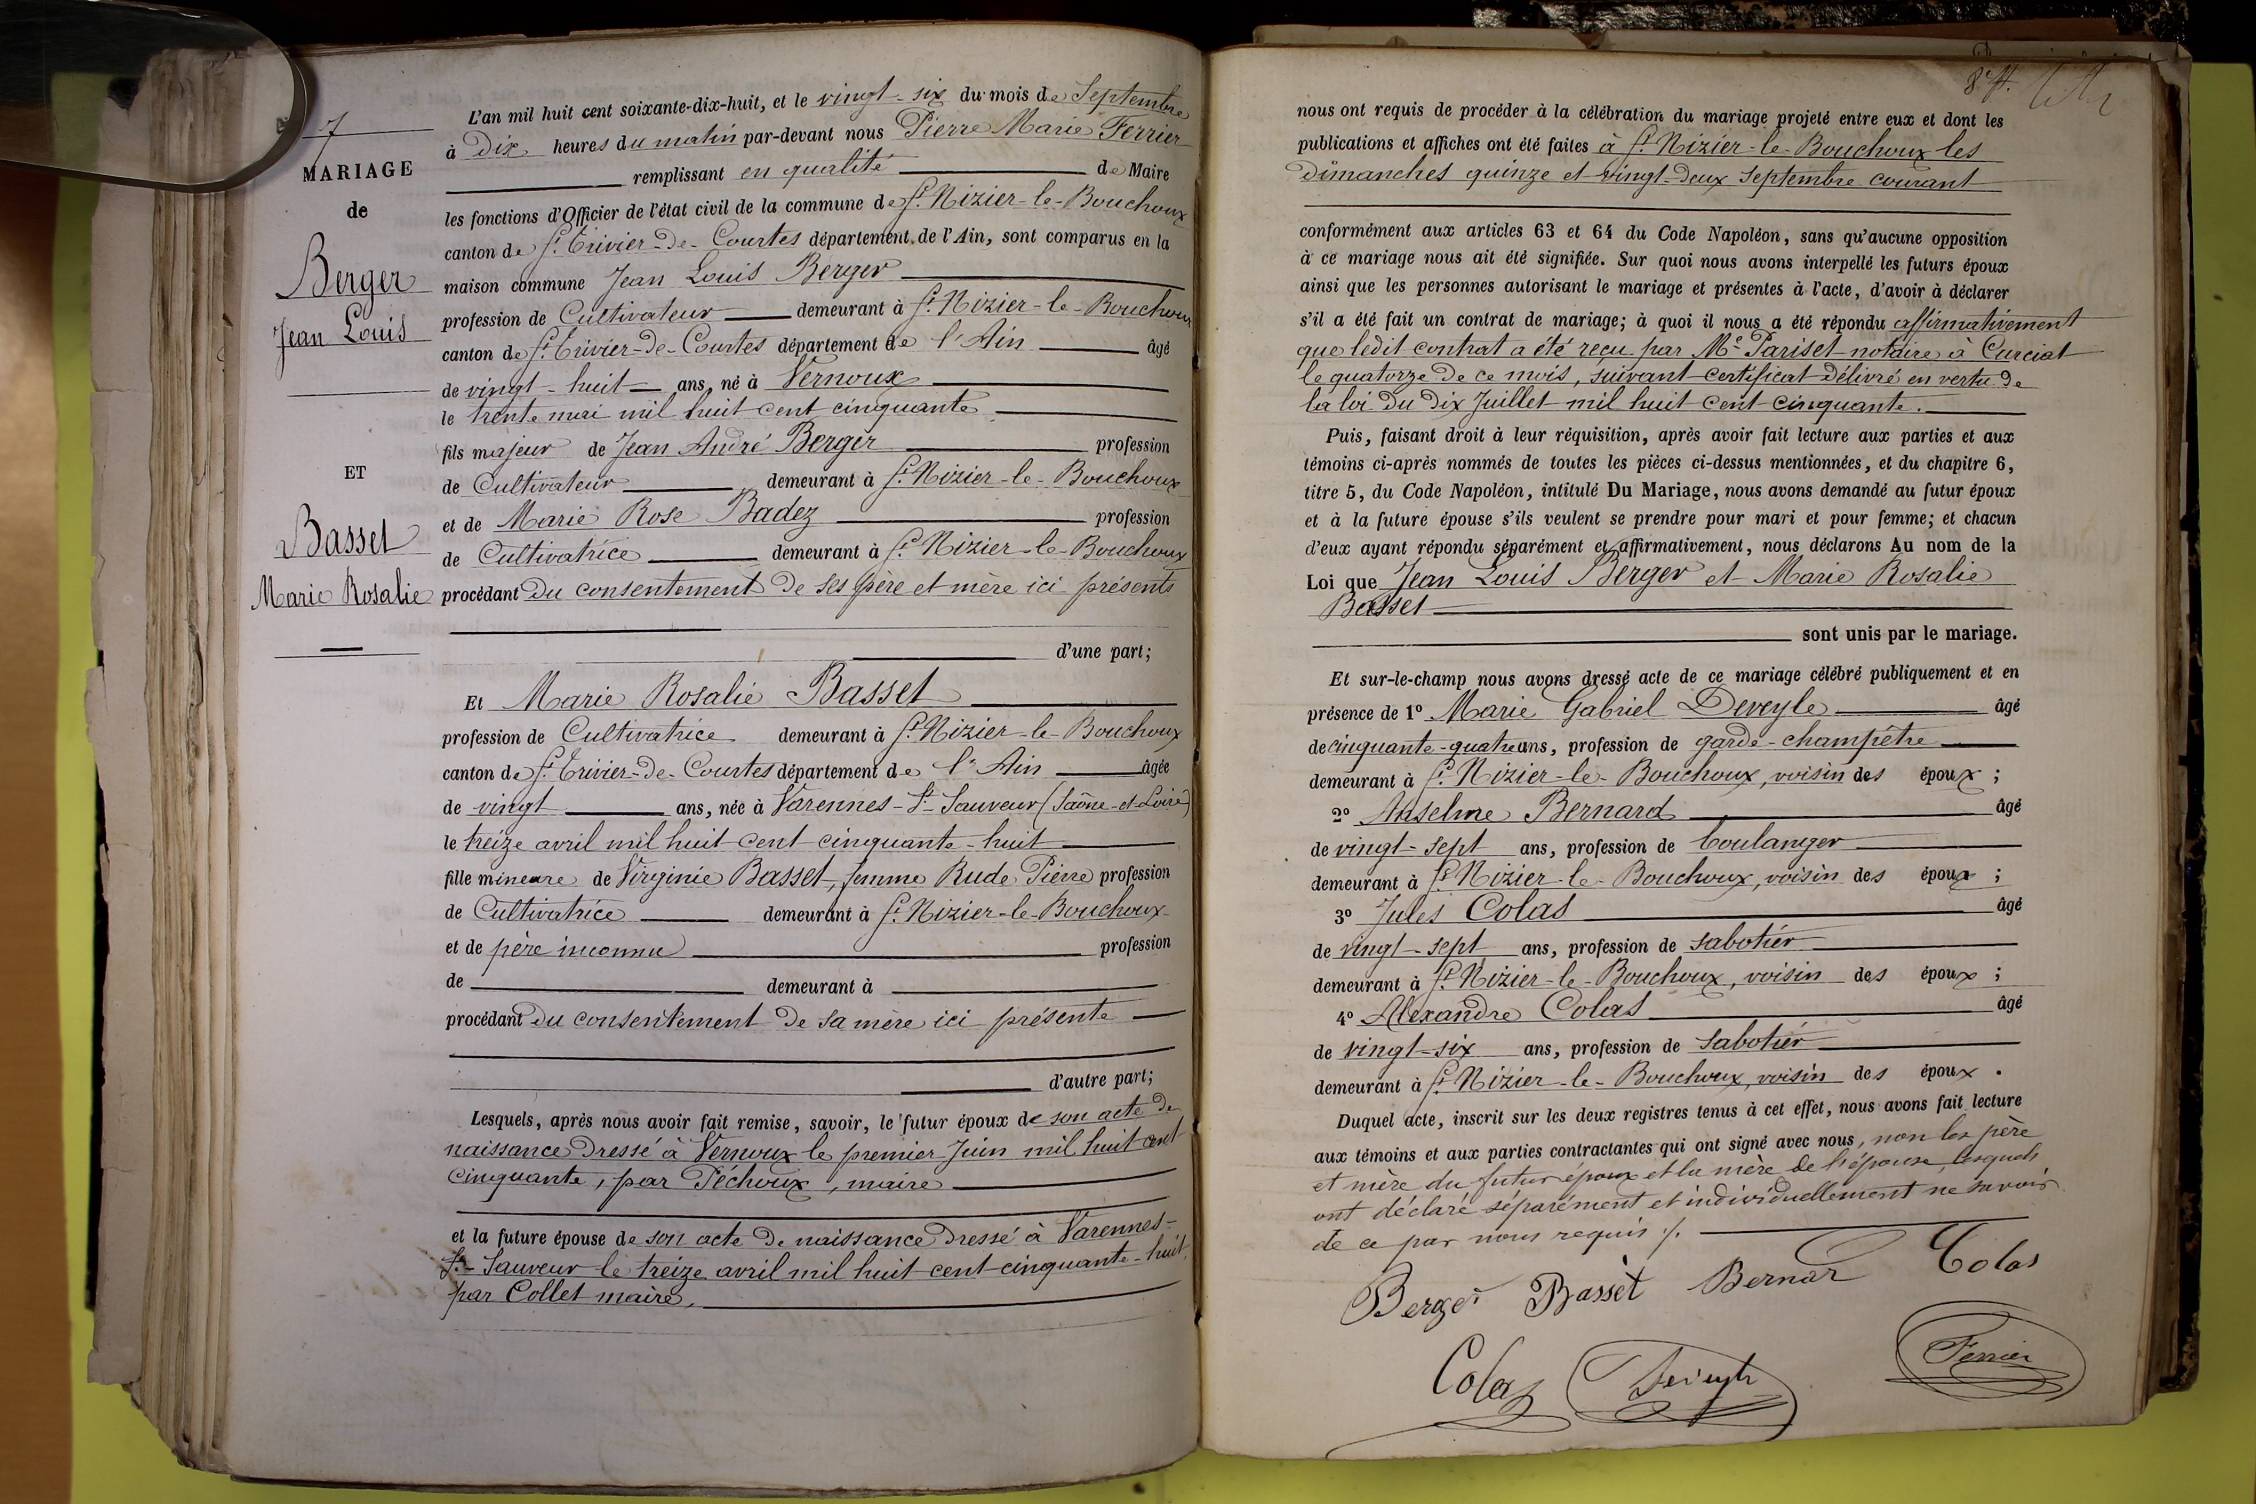 7
MARIAGE
de
Berger
Jean Louis
ET
Basset
Marie Rosalie
L'an mil huit cent soixante-dix-huit, et le vingt-six du mois de Septembre
à Dix heures du matin par-devant nous Pierre Marie Ferrier
remplissant en qualité de Maire
les fonctions d'Officier de l'état civil de la commune de St Nizier-le-Bouchoux
canton de St Trivier-de-Courtes département de l'Ain, sont comparus en la
maison commune Jean Louis Berger
profession de Cultivateur demeurant à St Nizier-le-Bouchoux
canton de St Trivier-de-Courtes département de l'Ain âgé
de vingt-huit ans, né à Vernoux
le trente mai mil huit cent cinquante
fils majeur de Jean André Berger profession
de Cultivateur demeurant à St Nizier-le-Bouchoux
et de Marie Rose Badez profession
de Cultivatrice demeurant à St Nizier-le-Bouchoux
procédant Du consentement De ses père et mère ici présents
d'une part;
Et Marie Rosalie Basset
profession de Cultivatrice demeurant à St Nizier-le-Bouchoux
canton de St Trivier-de-Courtes département de l'Ain âgée
de vingt ans, née à Varennes-St-Sauveur (Saône-et-Loire)
le treize avril mil huit cent cinquante-huit
fille mineure de Virginie Basset, femme Rude Pierre profession
de Cultivatrice demeurant à St Nizier-le-Bouchoux
et de père inconnu profession
de demeurant à
procédant Du consentement De sa mère ici présente
d'autre part;
Lesquels, après nous avoir fait remise, savoir, le futur époux de son acte de
naissance Dressé à Vernoux le premier Juin mil huit cent
cinquante, par Péchoux, maire
et la future épouse de son acte De naissance Dressé à Varennes-
St-Sauveur le treize avril mil huit cent cinquante-huit,
par Collet maire,
nous ont requis de procéder à la célébration du mariage projeté entre eux et dont les
publications et affiches ont été faites à St Nizier-le-Bouchoux les
Dimanches quinze et vingt-deux Septembre courant
conformément aux articles 63 et 64 du Code Napoléon, sans qu'aucune opposition
à ce mariage nous ait été signifiée. Sur quoi nous avons interpellé les futurs époux
ainsi que les personnes autorisant le mariage et présentes à l'acte, d'avoir à déclarer
s'il a été fait un contrat de mariage; à quoi il nous a été répondu affirmativement
que ledit contrat a été reçu par Me Pariset notaire à Curciat
le quatorze De ce mois, suivant certificat Délivré en vertu de
la loi Du Dix Juillet mil huit cent cinquante.
Puis, faisant droit à leur réquisition, après avoir fait lecture aux parties et aux
témoins ci-après nommés de toutes les pièces ci-dessus mentionnées, et du chapitre 6,
titre 5, du Code Napoléon, intitulé Du Mariage, nous avons demandé au futur époux
et à la future épouse s'ils veulent se prendre pour mari et pour femme; et chacun
d'eux ayant répondu séparément et affirmativement, nous déclarons Au nom de la
Loi que Jean Louis Berger et Marie Rosalie
Basset
sont unis par le mariage.
Et sur-le-champ nous avons dressé acte de ce mariage célébré publiquement et en
présence de 1º Marie Gabriel Deveyle âgé
de cinquante-quatre ans, profession de garde-champêtre
demeurant à St Nizier-le-Bouchoux, voisin des époux ;
2º Anselme Bernard âgé
de vingt-sept ans, profession de boulanger
demeurant à St Nizier-le-Bouchoux, voisin des époux ;
3º Jules Colas âgé
de vingt-sept ans, profession de sabotier
demeurant à St Nizier-le-Bouchoux, voisin des époux ;
4º Alexandre Colas âgé
de vingt-six ans, profession de sabotier
demeurant à St Nizier-le-Bouchoux, voisin des époux .
Duquel acte, inscrit sur les deux registres tenus à cet effet, nous avons fait lecture
aux témoins et aux parties contractantes qui ont signé avec nous, non les père
et mère du futur époux et la mère de l'épouse, lesquels
ont déclaré séparément et individuellement ne savoir
de ce par nous requis ./.
Berger Basset Bernar Colas
Colas Ferrier